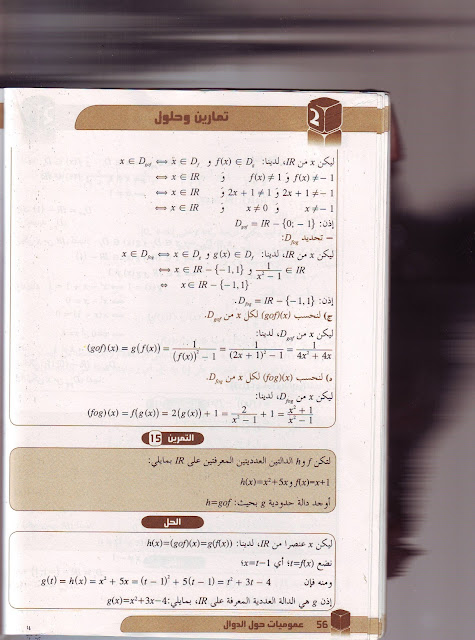 2
تمارين وحلول
ليكن x من IR، لدينا: x ∈ D_gof ⟺ x ∈ D_f و f(x) ∈ D_g
⟺ x ∈ IR و f(x) ≠ 1 و f(x) ≠ −1
⟺ x ∈ IR و 2x + 1 ≠ 1 و 2x + 1 ≠ −1
⟺ x ∈ IR و x ≠ 0 و x ≠ −1
إذن: D_gof = IR − {0; −1}
– تحديد D_fog:
ليكن x من IR، لدينا: x ∈ D_fog ⟺ x ∈ D_g و g(x) ∈ D_f
⟺ x ∈ IR − {−1,1} و 1/(x² − 1) ∈ IR
⇔ x ∈ IR − {−1,1}
إذن: D_fog = IR − {−1,1}.
ج) لنحسب (gof)(x) لكل x من D_gof.
ليكن x من D_gof، لدينا:
(gof)(x) = g(f(x)) = 1/((f(x))² − 1) = 1/((2x + 1)² − 1) = 1/(4x² + 4x)
د) لنحسب (fog)(x) لكل x من D_fog.
ليكن x من D_fog، لدينا:
(fog)(x) = f(g(x)) = 2(g(x)) + 1 = 2/(x² − 1) + 1 = (x² + 1)/(x² − 1)
التمرين 15
لتكن f و h الدالتين العدديتين المعرفتين على IR بمايلي:
f(x)=x+1 و h(x)=x²+5x
أوجد دالة حدودية g بحيث: h=gof
الحل
ليكن x عنصرا من IR، لدينا: h(x)=(gof)(x)=g(f(x))
نضع t=f(x)؛ أي x=t−1؛
ومنه فإن g(t) = h(x) = x² + 5x = (t − 1)² + 5(t − 1) = t² + 3t − 4
إذن g هي الدالة العددية المعرفة على IR، بمايلي: g(x)=x²+3x−4
56 عموميات حول الدوال